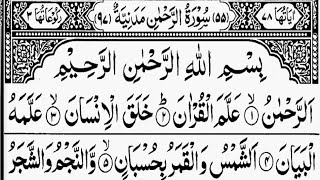 اٰيَاتُهَا ٧٨ (٥٥) سُوْرَةُ الرَّحْمٰنِ مَدَنِيَّةٌ (٩٧) رُكُوْعَاتُهَا ٣
بِسْمِ اللّٰهِ الرَّحْمٰنِ الرَّحِيْمِ
اَلرَّحْمٰنُ ۙ﴿۱﴾ عَلَّمَ الْقُرْاٰنَ ؕ﴿۲﴾ خَلَقَ الْاِنْسَانَ ۙ﴿۳﴾ عَلَّمَهُ
الْبَيَانَ ﴿۴﴾ اَلشَّمْسُ وَالْقَمَرُ بِحُسْبَانٍ ۙ﴿۵﴾ وَّالنَّجْمُ وَالشَّجَرُ